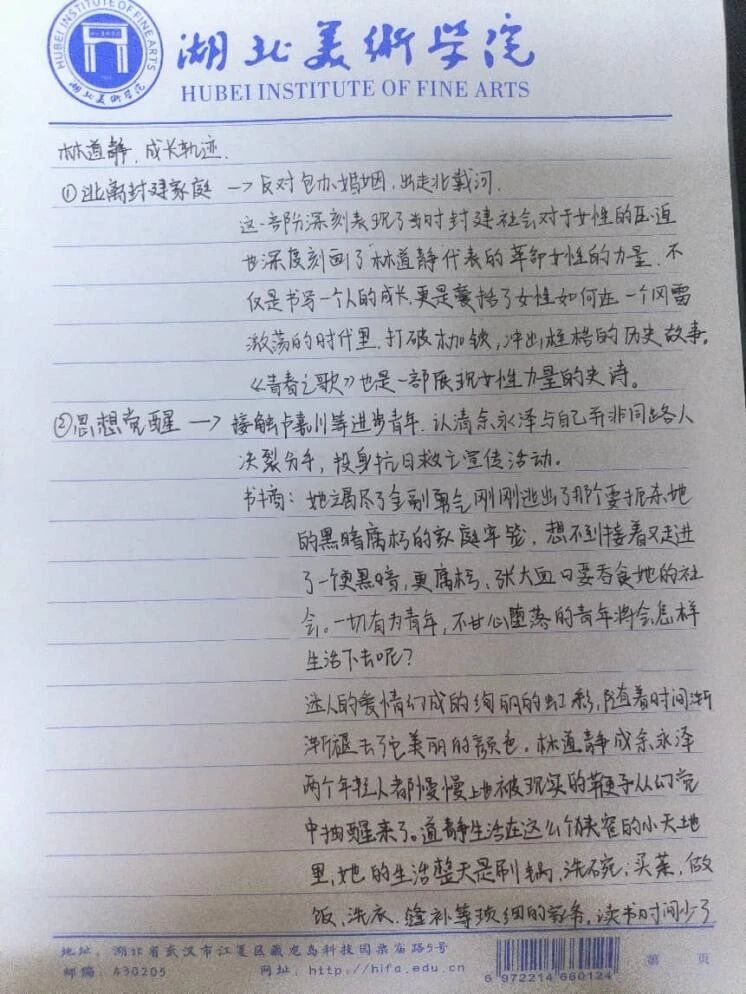 HUBEI INSTITUTE OF FINE ARTS
湖北美術学院
湖北美術学院
HUBEI INSTITUTE OF FINE ARTS
林道静,成长轨迹.
①逃离封建家庭 → 反对包办婚姻,出走北戴河.
这一部份深刻表现了当时封建社会对于女性的压迫
也深度刻画了林道静代表的革命女性的力量,不
仅是书写一个人的成长,更是囊括了女性如何在一个风雷
激荡的时代里,打破枷锁,冲出桎梏的历史故事。
《青春之歌》也是一部展现女性力量的史诗。
②思想觉醒 → 接触卢嘉川等进步青年,认清余永泽与自己并非同路人
决裂分手,投身抗日救亡宣传活动.
书摘:她竭尽了全副勇气刚刚逃出了那个要扼杀她
的黑暗腐朽的家庭牢笼,想不到接着又走进
了一个更黑暗,更腐朽、张大血口要吞食她的社
会。一切有为青年,不甘心堕落的青年将会怎样
生活下去呢?
迷人的爱情幻成的绚丽的虹彩,随着时间渐
渐褪去了它美丽的颜色。林道静成余永泽
两个年轻人都慢慢地被现实的鞭子从幻觉
中抽醒来了。道静生活在这么个狭窄的小天地
里,她的生活整天是刷锅、洗碗、买菜、做
饭、洗衣、缝补等琐细的家务,读书时间少了
地址:湖北省武汉市江夏区藏龙岛科技园栗庙路5号
邮编:430205 网址:http://hifa.edu.cn
6 972214 660124
第 页